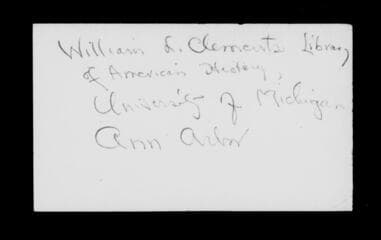 William L. Clements Library
of American History,
University of Michigan
Ann Arbor